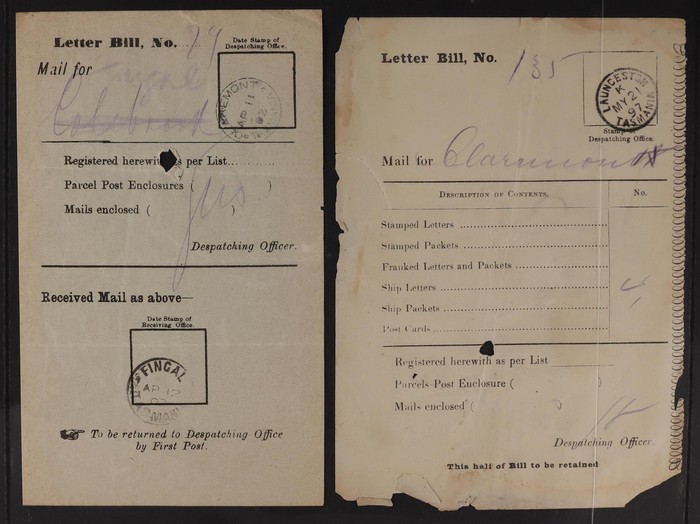 Letter Bill, No. 79
Date Stamp of
Despatching Office.
Mail for Fingal
Colebrook
AP 11
Registered herewith as per List
Parcel Post Enclosures ( )
Mails enclosed ( )
Despatching Officer.
Received Mail as above—
Date Stamp of
Receiving Office.
FINGAL
AP 12
TASMANIA
To be returned to Despatching Office
by First Post.
Letter Bill, No. 135
LAUNCESTON
K
MY 21
97
TASMANIA
Stamp of
Despatching Office.
Mail for Claremont
Description of Contents. No.
Stamped Letters
Stamped Packets
Franked Letters and Packets
Ship Letters 4
Ship Packets
Post Cards
Registered herewith as per List
Parcels Post Enclosure ( )
Mails enclosed ( )
Despatching Officer.
This half of Bill to be retained